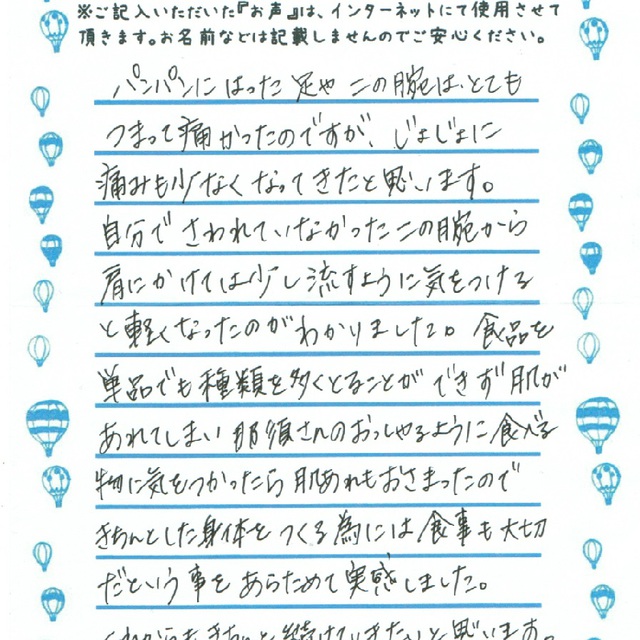 ※ご記入いただいた『お声』は、インターネットにて使用させて
頂きます。お名前などは記載しませんのでご安心ください。
パンパンにはった足や二の腕は、とても
つまって痛かったのですが、じょじょに
痛みも少なくなってきたと思います。
自分でさわれていなかった二の腕から
肩にかけては少し流すように気をつける
と軽くなったのがわかりました。食品を
単品でも種類を多くとることができず肌が
あれてしまい那須さんのおっしゃるように食べる
物に気をつかったら肌あれもおさまったので
きちんとした身体をつくる為には食事も大切
だという事をあらためて実感しました。
これからもきちんと続けていきたいと思います。